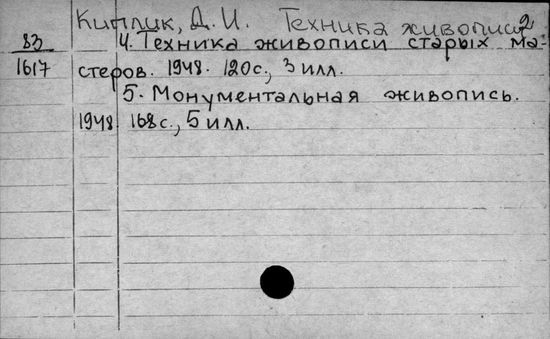 Киплик, Д. И. Техника живописи 2
83 4. Техника живописи старых ма-
1617 стеров. 1948. 120 с., 3 илл.
5. Монументальная живопись.
1948 168 с., 5 илл.